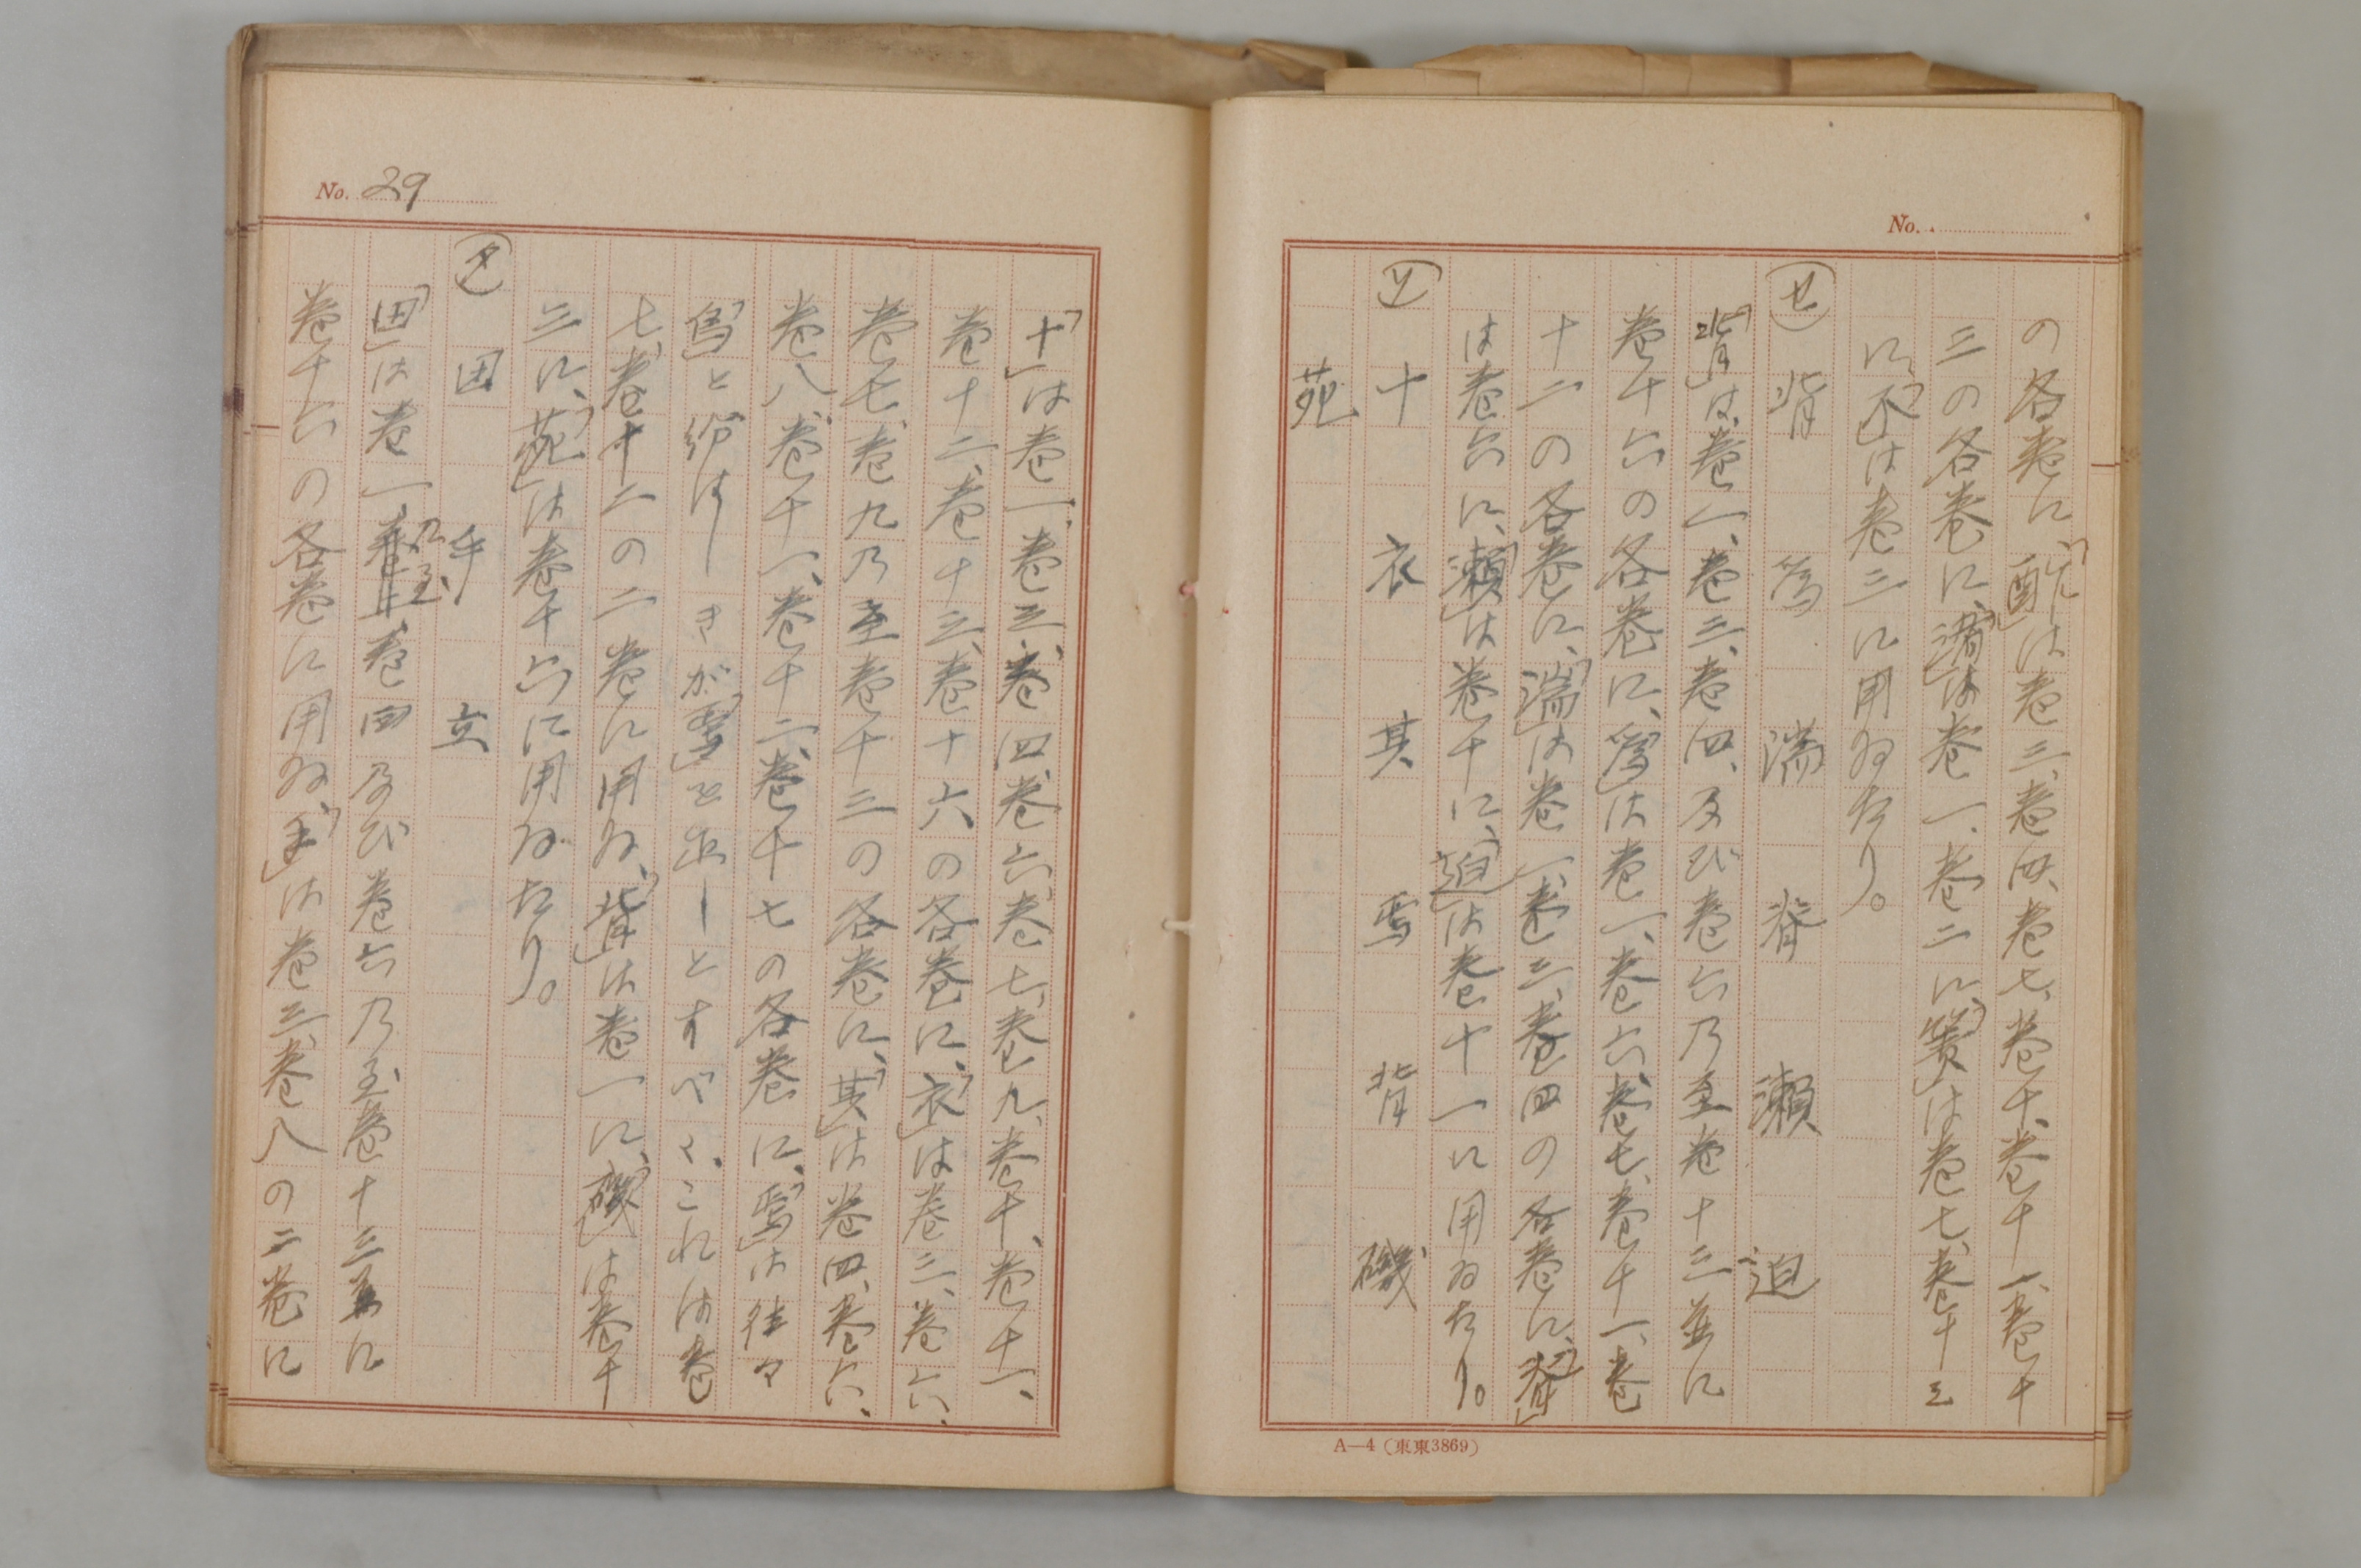 No.
の各巻に、「酢」は巻三、巻四、巻七、巻十、巻十一、巻十
三の各巻に、「渚」は巻一、巻二に、「簀」は巻七、巻十三
に、「不」は巻三に用ゐたり。
セ 背 湍 瀬 迫
「背」は、巻一、巻三、巻四、及び巻六乃至巻十三並に
巻十六の各巻に、は巻一、巻六、巻七、巻十一、巻
十二の各巻に、「湍」は巻一、巻三、巻四の各巻に、
は巻六に、「瀬」は巻十に、「迫」は巻十一に用ゐたり。
ソ 十 衣 其 背 磯
苑
A—4(東東3869)
No. 29
「十」は巻一、巻三、巻四、巻六、巻七、巻九、巻十、巻十一、
巻十二、巻十三、巻十六の各巻に、「衣」は巻三、巻六、
巻七、巻九乃至巻十三の各巻に、「其」は巻四、巻六、
巻八、巻十一、巻十二、巻十七の各巻に、は往々
と とすべく、これは巻
七、巻十二の二巻に用ゐ、「背」は巻一に、「磯」は巻十
三に、「苑」は巻十六に用ゐたり。
タ 田 手 立
「田」は巻一乃至巻四及び巻六乃至巻十三並に
巻十六の各巻に用ゐ、「手」は巻三、巻八の二巻に